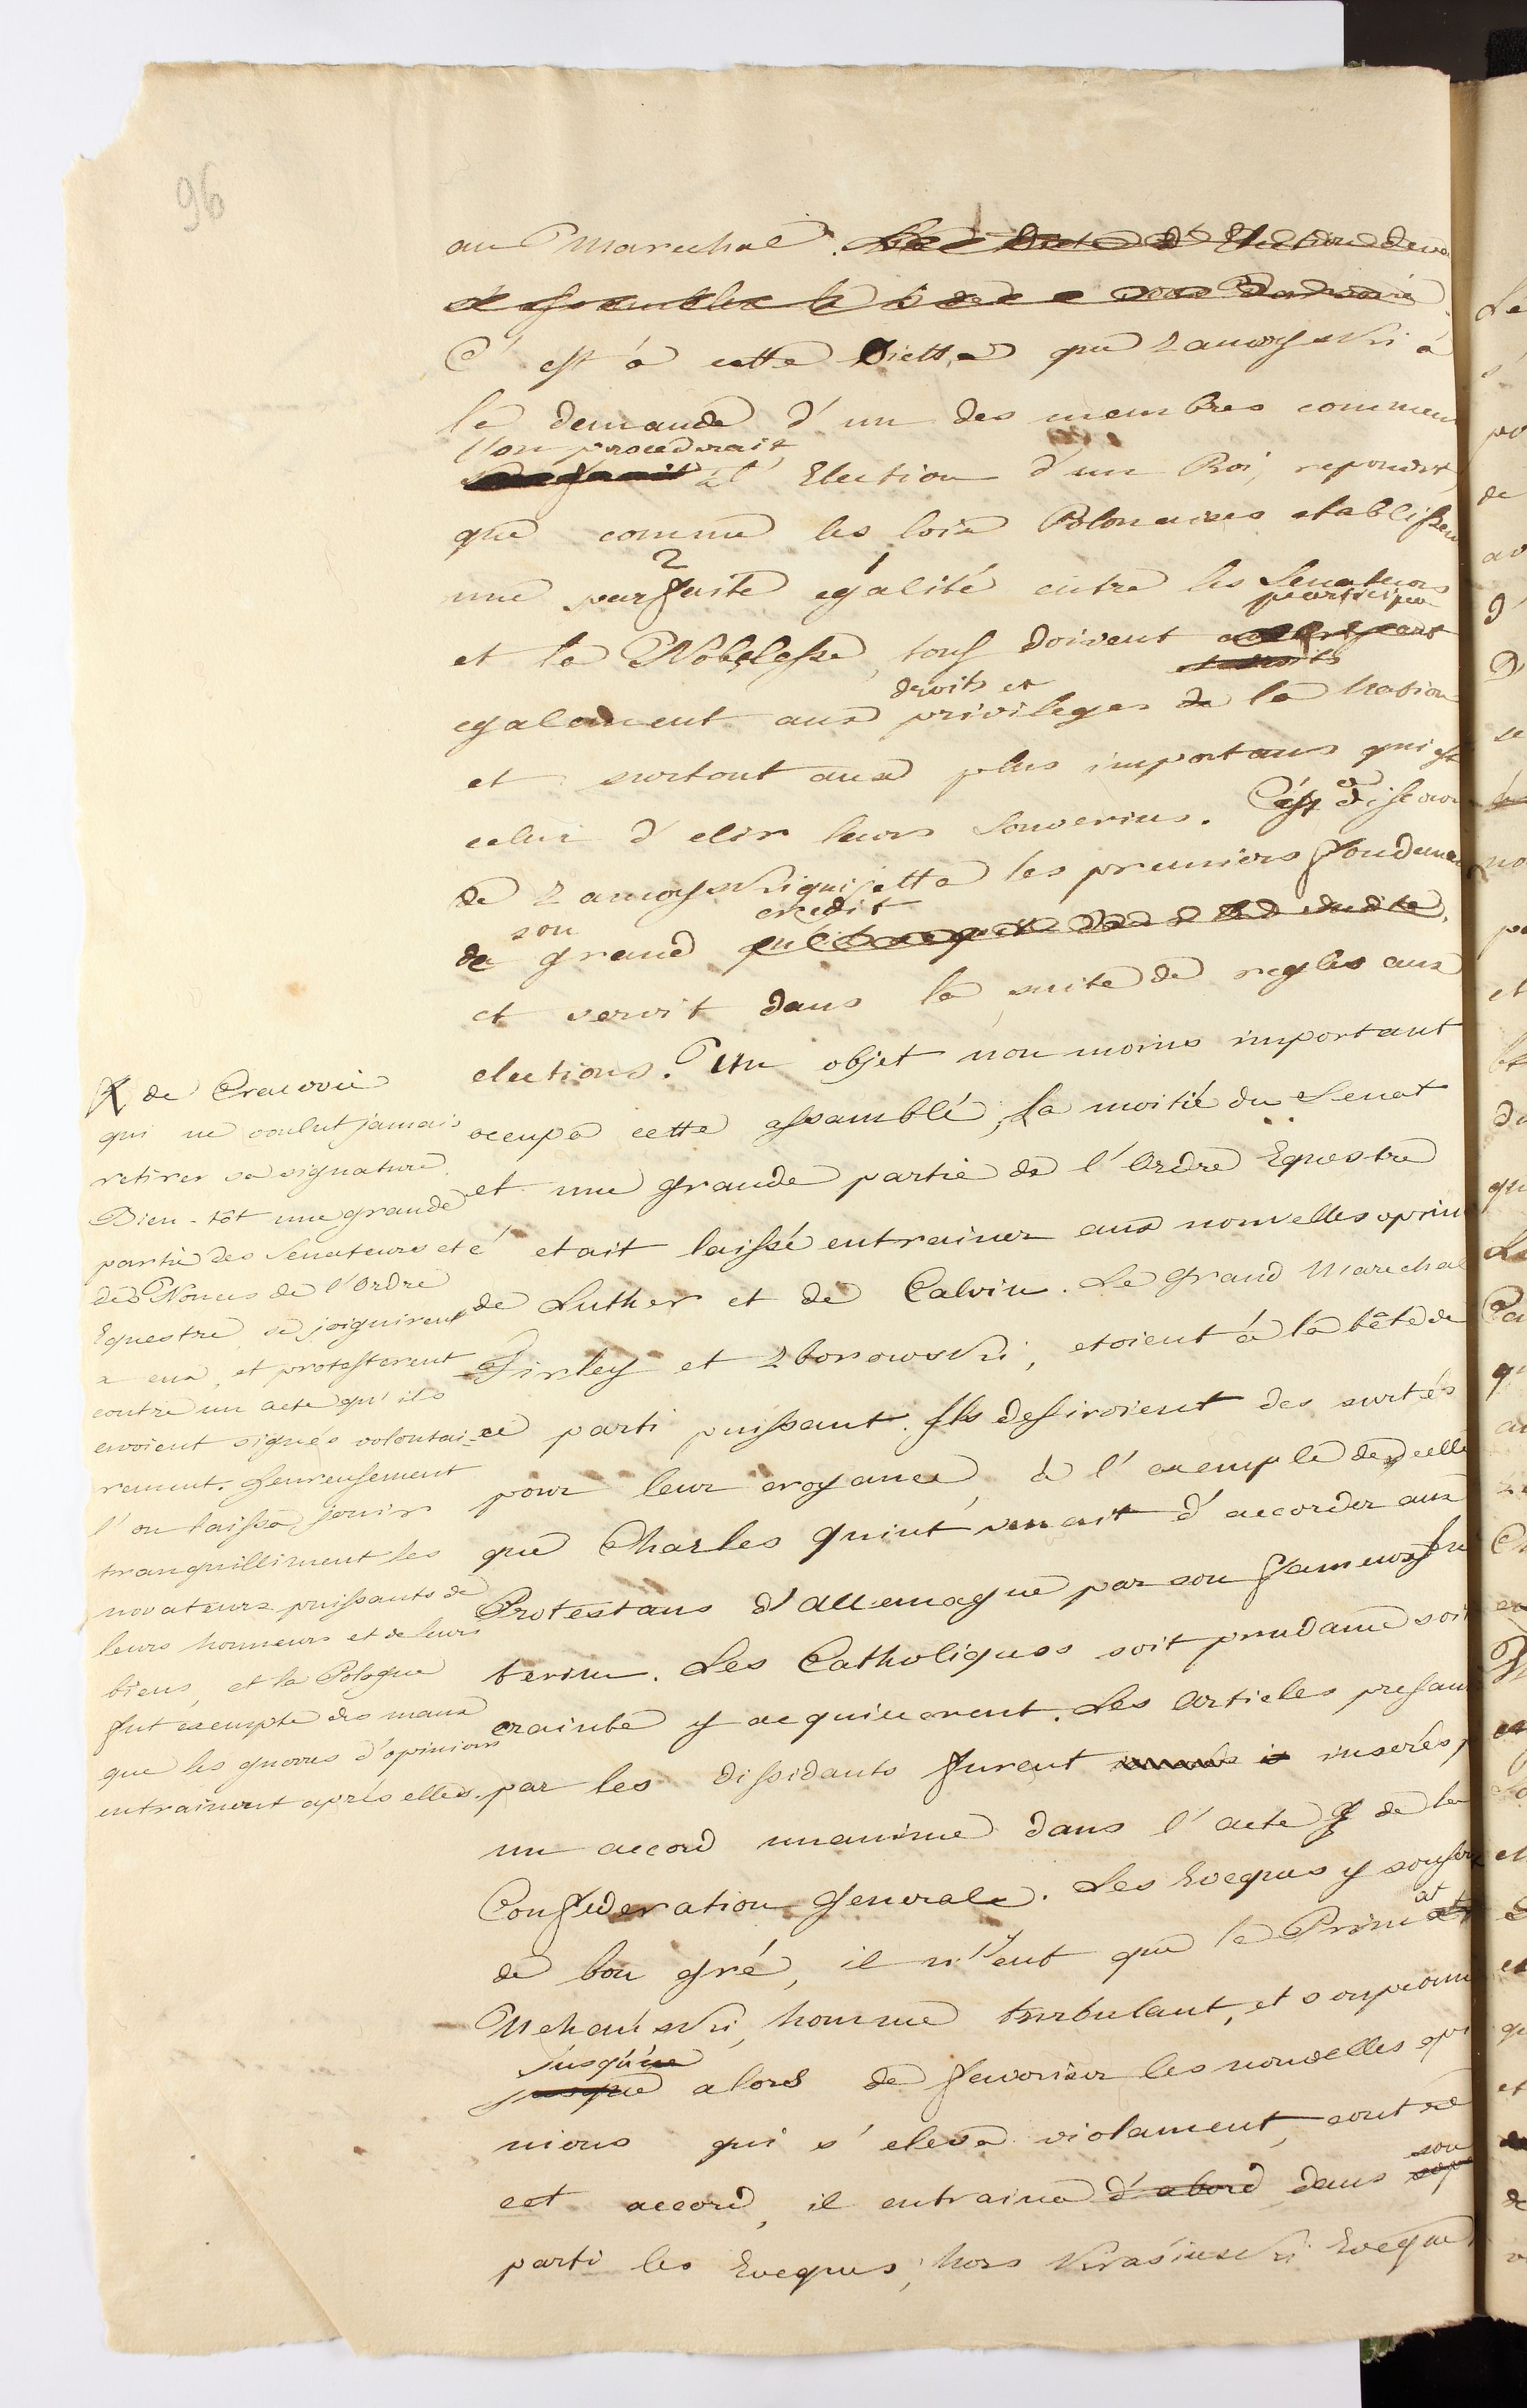 96
au Marechal.
C'est à cette Diette que Zamoyski à
la demande d'un des membres commen
l'on procederait
à l'Election d'un Roi, repondit
que comme les loix Polonaises etablissen
2 1
une parfaite egalité entre les Senateurs
participer
et la Noblesse, tous doivent
droits et
egalement aux privileges de la Nation
et surtout aux plus importans qui est
celui d'elir leurs Souverins. C'est ce discour
de Zamoyski qui jetta les premiers fondemen
son credit
de grand
et servit dans la suite de regles aux
elections. Un objet non moins important
occupa cette assamblé, La moitié du Senat
et une grande partie de l'Ordre Equestre
é etait laissé entrainer aux nouvelles opin
de Luther et de Calvin. Le Grand Marechal
Firley et Zborowski, etoient à la tête de
ce parti puissant. Ils desiroient des surtés
pour leur croyance, à l'exemple de celle
que Charles quint venait d'accorder aux
Protestans d'Allemagne par son fameux In
terim. Les Catholiques soit prudance soit
crainte y acquiecerent. Les Articles presan
par les dissidants furent inserés p
un accord unanime dans l'acte de la
Confederation Generale. Les Eveques y sousc
de bon gré, il n'y eut que le Primat
Uchański, homme turbulant, et soupconn
jusqu'
alors de favoriser les nouvelles opi
nions qui s'eleva violament contre
cet accord, il entraina d'abord dans son
parti les Eveques, hors Krasiński Eveque
X de Cracovie
qui ne voulut jamais
retirer sa signature.
Bien-tôt une grande
partie des Senateurs et
des Nonces de l'Ordre
Equestre se joignirent
a eux, et protesterent
contre un acte qu'ils
avoient signés volontai-
rement. Heureusement
l'on laissa jouir
tranquilliment les
novateurs puissants de
leurs honneurs et de leurs
biens, et la Pologne
fut exempte des maux
que les guerres d'opinions
entrainent après elles.